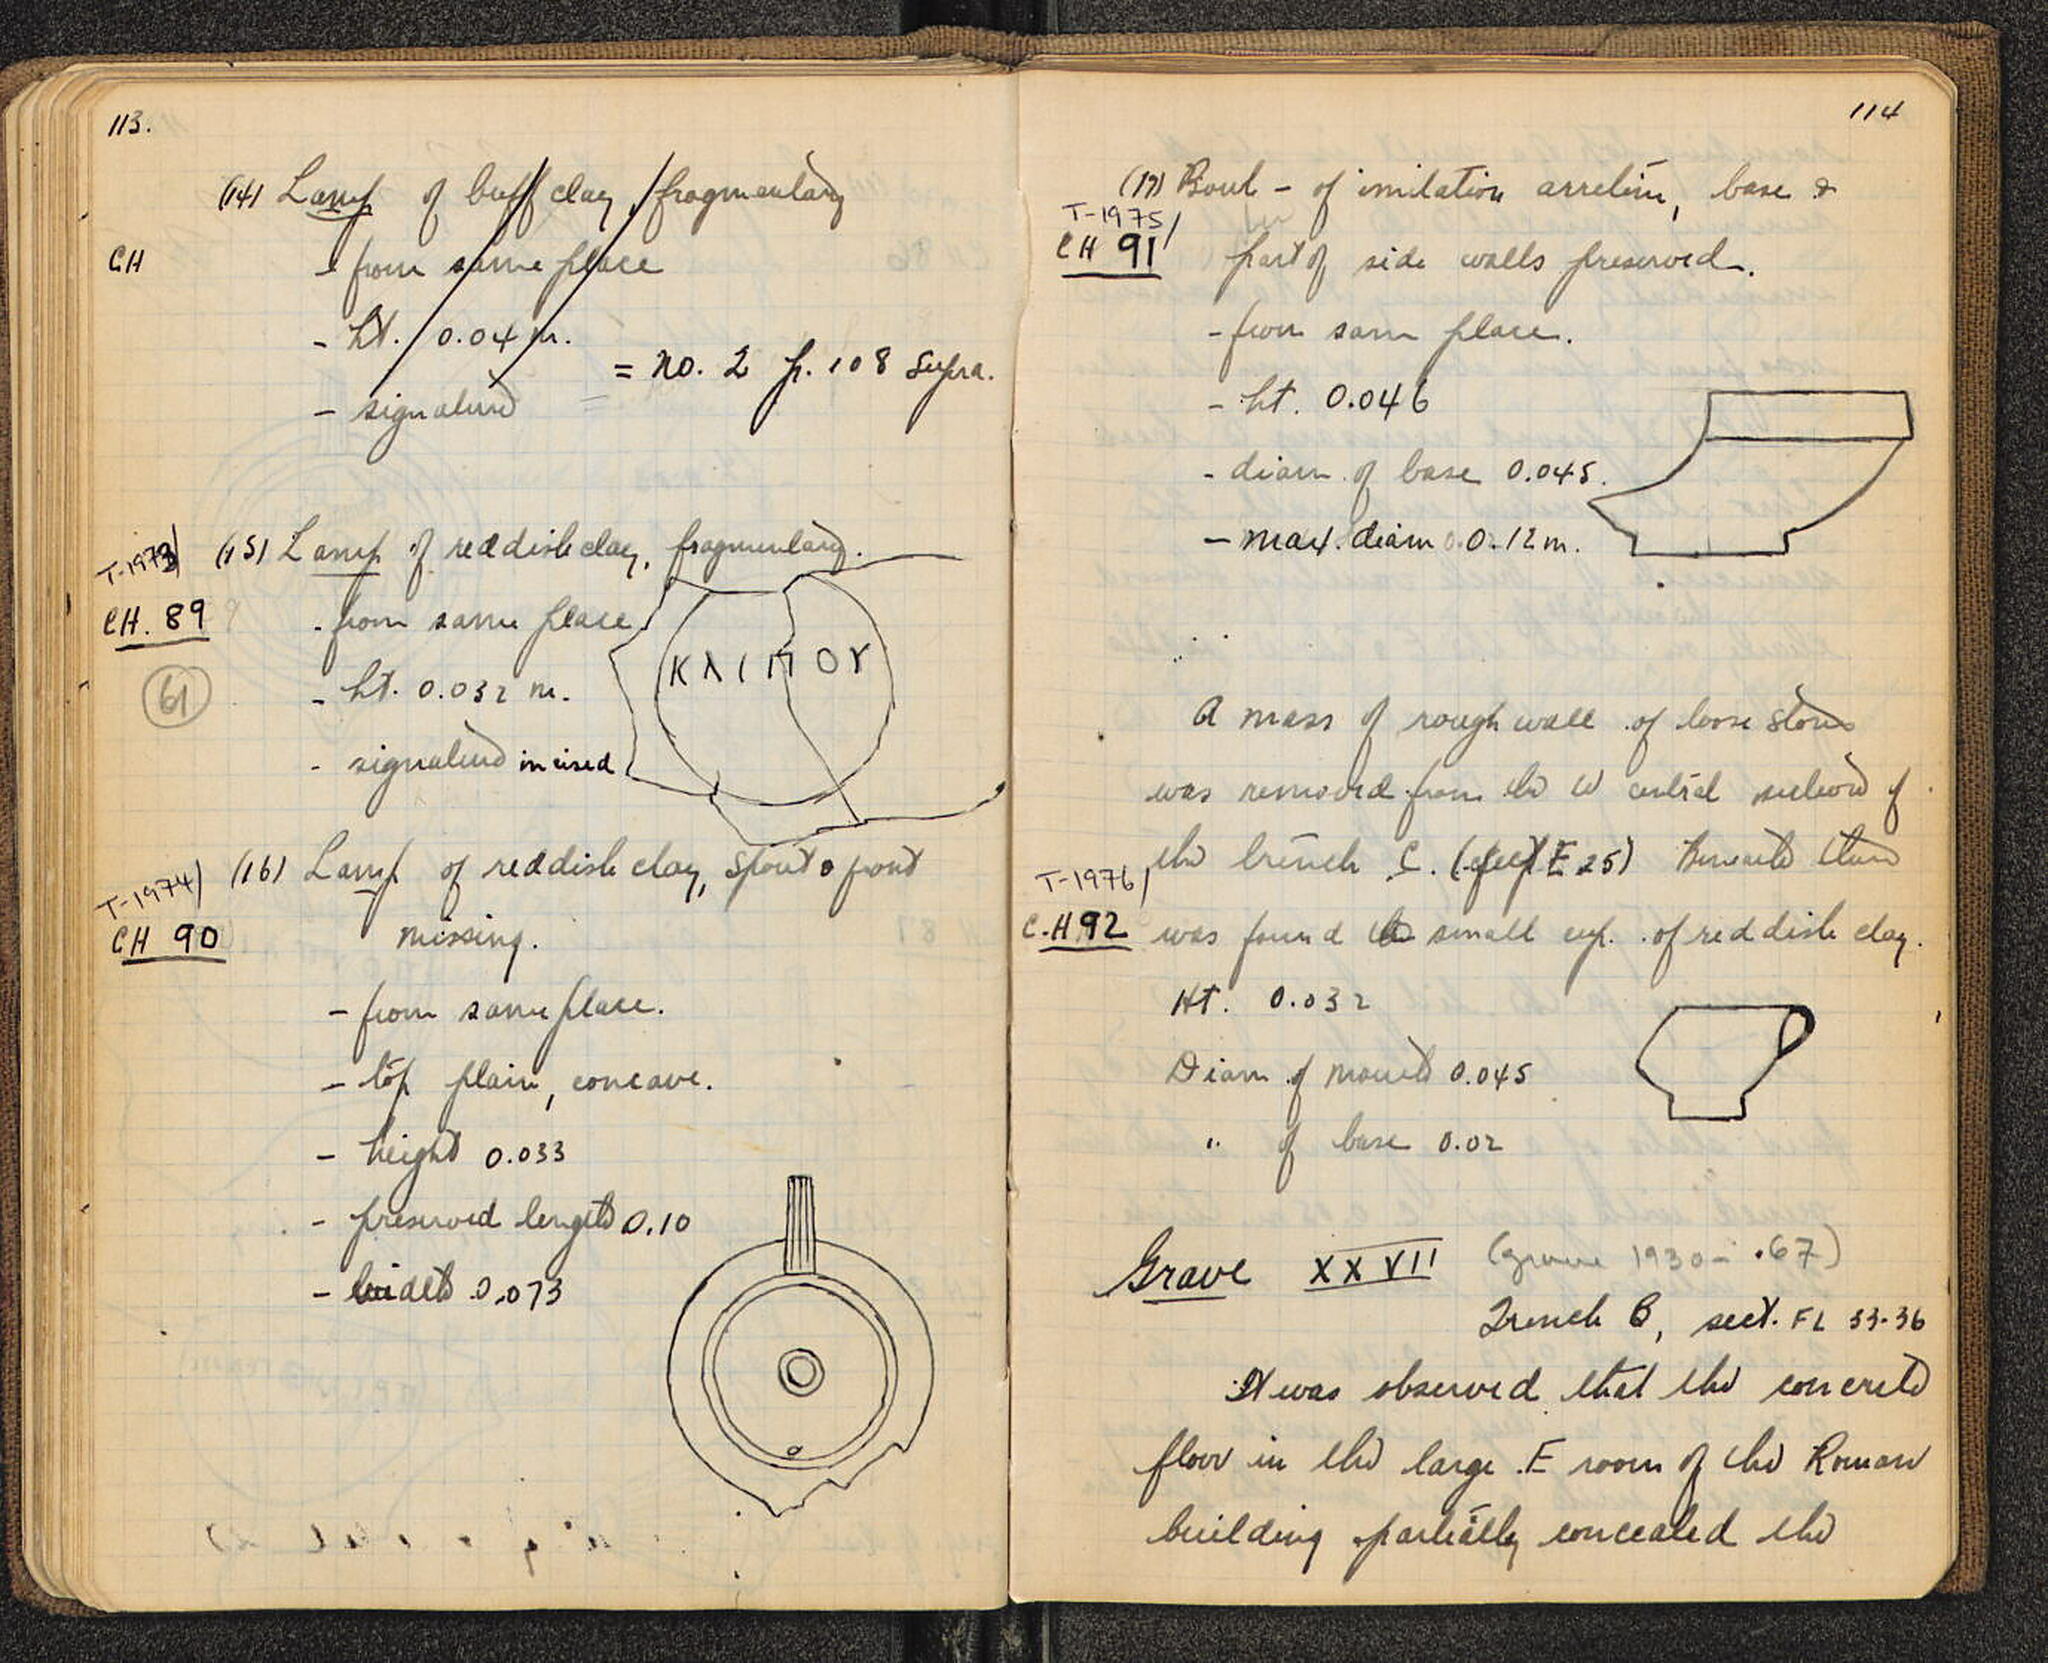 113.
(14) Lamp of buff clay, fragmentary
CH
- from same place
- ht. 0.04 m.
= no. 2 p. 108 supra.
- signature
T-1973/
(15) Lamp of reddish clay, fragmentary.
CH. 89
- from same place.
ΚΛΙΠΟΥ
61
- ht. 0.032 m.
- signature incised
(16) Lamp of reddish clay, spout & front
T-1974/
CH 90
missing.
- from same place.
- top plain, concave.
- height 0.033
- preserved length 0.10
- width 0.073
114
(17) Bowl - of imitation arretine, base &
T-1975/
CH 91
part of side walls preserved.
- from same place.
- ht. 0.046
- diam. of base 0.045.
- max. diam 0.12 m.
A mass of rough wall of loose stones
was removed from the W central section of
the trench C. (E 25) Beneath them
T-1976/
C.H 92
was found a small cup of reddish clay.
Ht. 0.032
Diam of mouth 0.045
" of base 0.02
Grave XXVII (grave 1930 - .67)
Trench B, sect. FL 33-36
It was observed that the concrete
floor in the large E room of the Roman
building partially concealed the